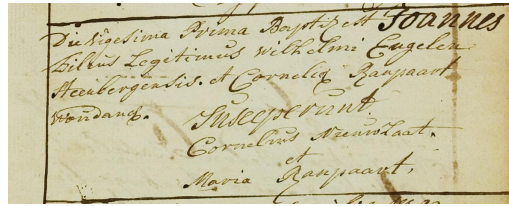 Die Vigesima Prima Baptiz est Joannes
Filius Legitimus Wilhelmi Engelen
Steenbergensis. et Corneliæ Ranpaart
Woudanæ.
Susceperunt
Cornelius Nieuwlaat.
et
Maria Ranpaart.